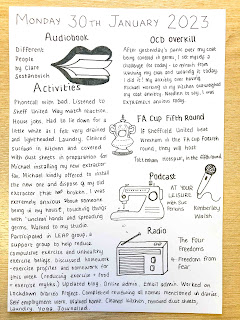 MONDAY 30TH JANUARY 2023
Audiobook
Different
People
by Clare
Sestanovich
OCD overkill
After yesterday's panic over my coat
being covered in germs, I set myself a
challenge for today - to refrain from
washing my coat and wearing it today.
I did it! My anxiety over having
Michael working in my kitchen overweighed
my coat anxiety. Needless to say, I was
extremely anxious today.
Activities
Phonecall with dad. Listened to
Sheff United Way match reaction.
House jobs. Had to lie down for a
little while as I felt very drained
and lightheaded. Laundry. Cleared
surfaces in kitchen and covered
with dust sheets in preparation for
Michael installing my new extractor
fan. Michael kindly offered to install
the new one and dispose of my old
extractor (the has broken). I was
extremely anxious about someone
being in my house, touching things
with 'unclean' hands and spreading
germs. Walked to my studio.
Participated in LEAP group, a
support group to help reduce
compulsive exercise and unhealthy
exercise beliefs. Discussed homework
- exercise profiles and homework for
this week (reducing exercise + food
+ exercise myths). Updated blog. Online admin. Email admin. Worked on
Lockdown Diaries Project. Completed
Self employment work. Walked home. Cleaned kitchen, removed dust sheets,
laundry. Yoga. Journalled.
FA Cup Fifth Round
If Sheffield United beat
Wrexham in the FA Cup Fourth
round, they will host
Tottenham Hotspur, in the fifth round.
Podcast
AT YOUR
LEISURE
with Sue
Perkins
Kimberley
Walsh
Radio
The Four
Freedoms
4 Freedom from
Fear